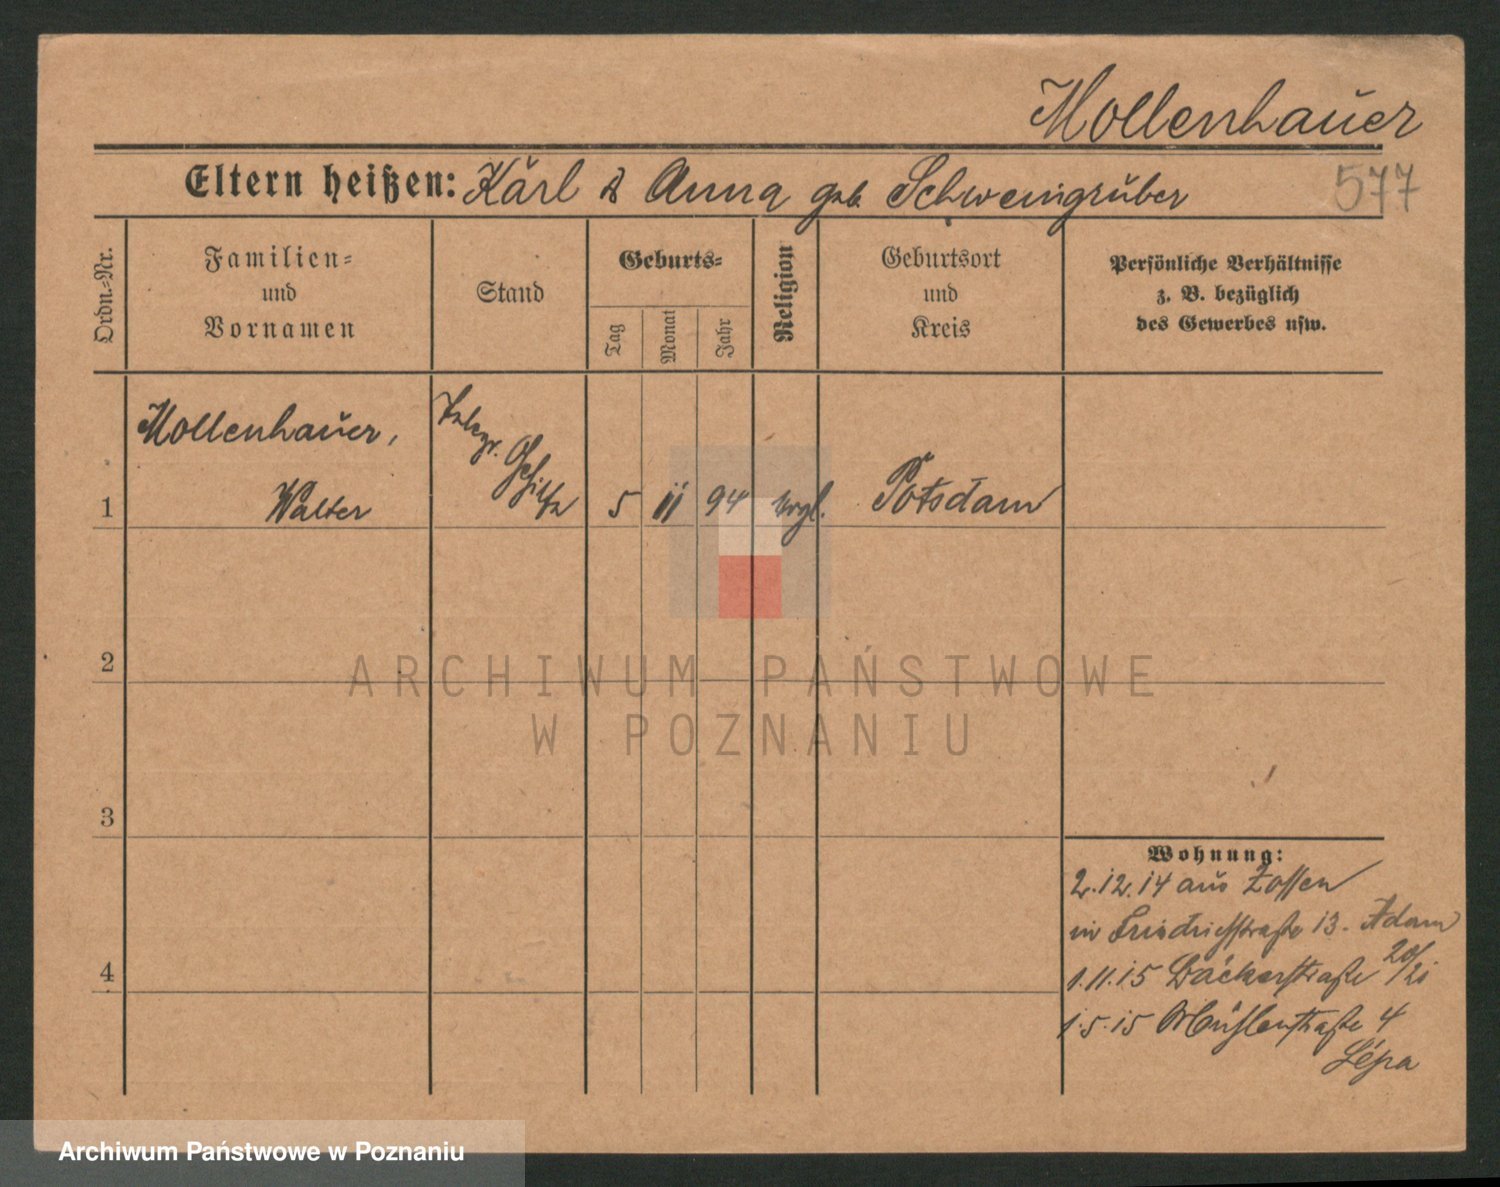 Mollenhauer
Eltern heißen: Karl & Anna geb. Schweingruber
577
Ordn.-Nr.
Familien-
und
Vornamen
Stand
Geburts-
Tag
Monat
Jahr
Religion
Geburtsort
und
Kreis
Persönliche Verhältnisse
z. B. bezüglich
des Gewerbes usw.
Mollenhauer,
Telegr.
Gehilfe
1 Walter 5 11 94 evgl. Potsdam
2
ARCHIWUM PAŃSTWOWE
W POZNANIU
3
Wohnung:
2.12.14 aus Zossen
in Friedrichstraße 13. Adam
1.11.15 Bäckerstraße 20/21
4
1.5.15 Mühlenstraße 4
Archiwum Państwowe w Poznaniu